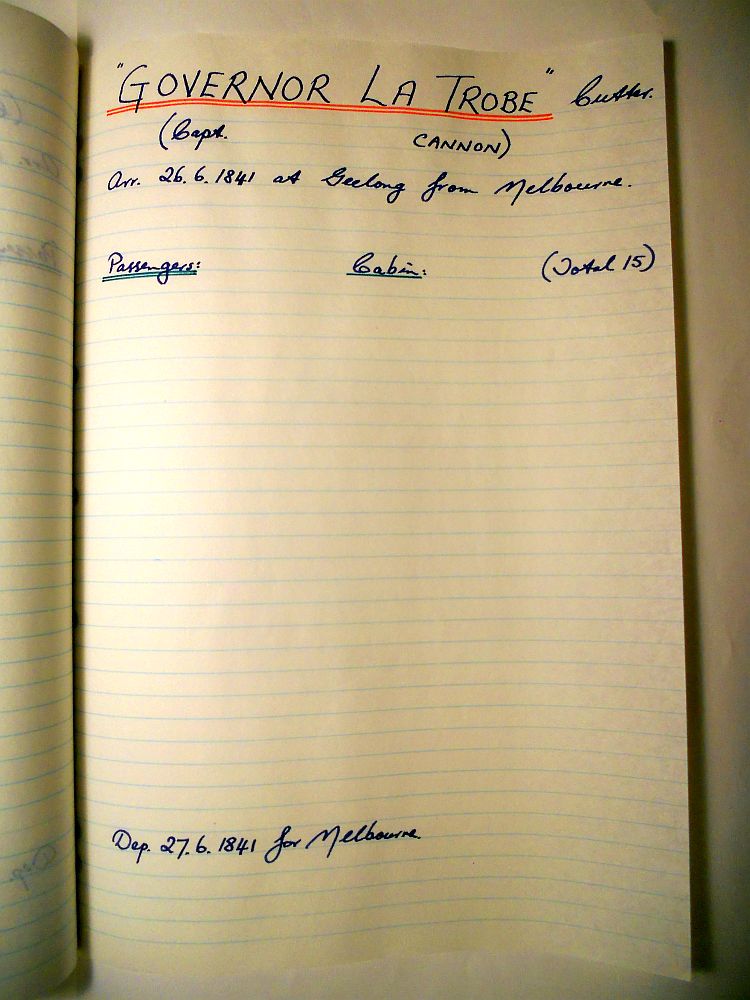 "GOVERNOR LA TROBE" Cutter.
(Capt. CANNON)
Arr. 26.6.1841 at Geelong from Melbourne.
Passengers: Cabin: (Total 15)
Dep. 27.6.1841 for Melbourne.